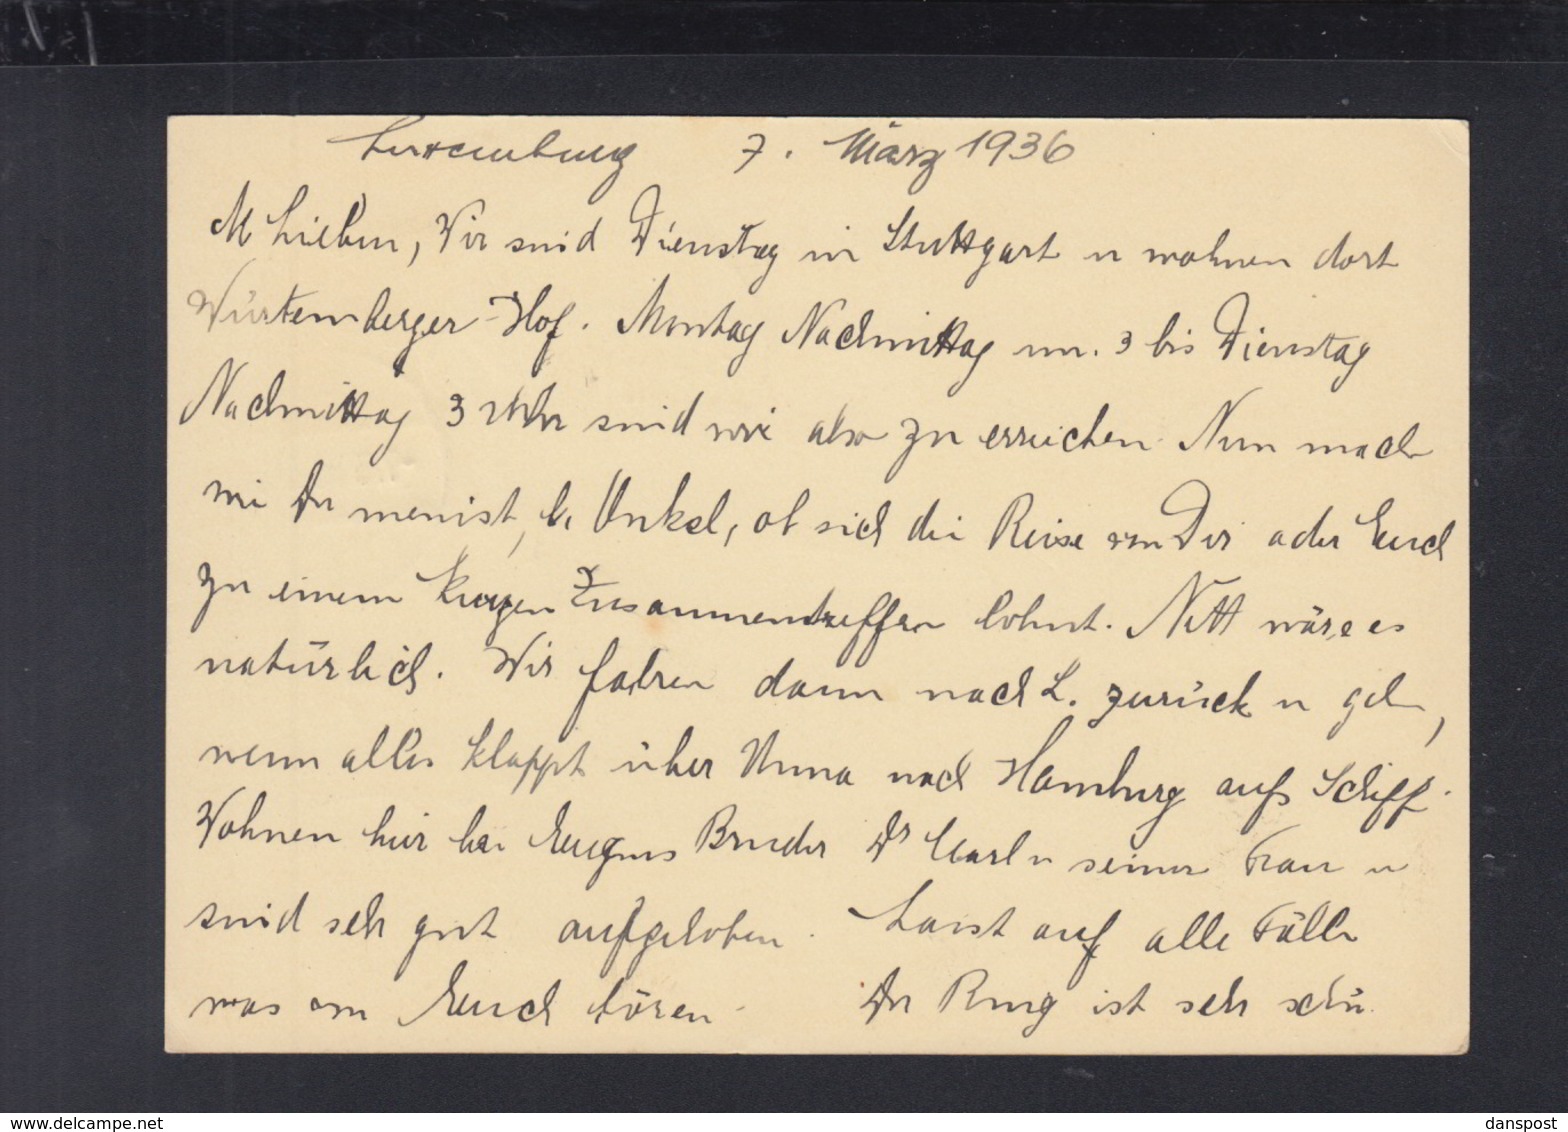 Luxemburg 7. März 1936
M Lieben, Wir sind Dienstag in Stuttgart u wohnen dort
Würtemberger-Hof. Montag Nachmittag um. 3 bis Dienstag
Nachmittag 3 Uhr sind wir also zu erreichen. Nun mach
wie Du meinst, l. Onkel, ob sich die Reise von Dir oder Euch
zu einem kurzen Zusammentreffen lohnt. Nett wäre es
natürlich. Wir fahren dann nach L. zurück u gehn,
wenn alles klappt über Unna nach Hamburg aufs Schiff.
Wohnen hier bei Eugens Bruder Dr Carl u seiner Frau u
sind sehr gut aufgehoben. Lasst auf alle Fälle
was von Euch hören. Der Ring ist sehr schö.
danspost